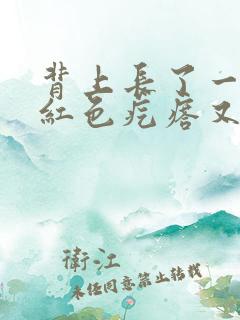 背上長了一
紅色疙瘩又
衛江
未經同意禁止轉載